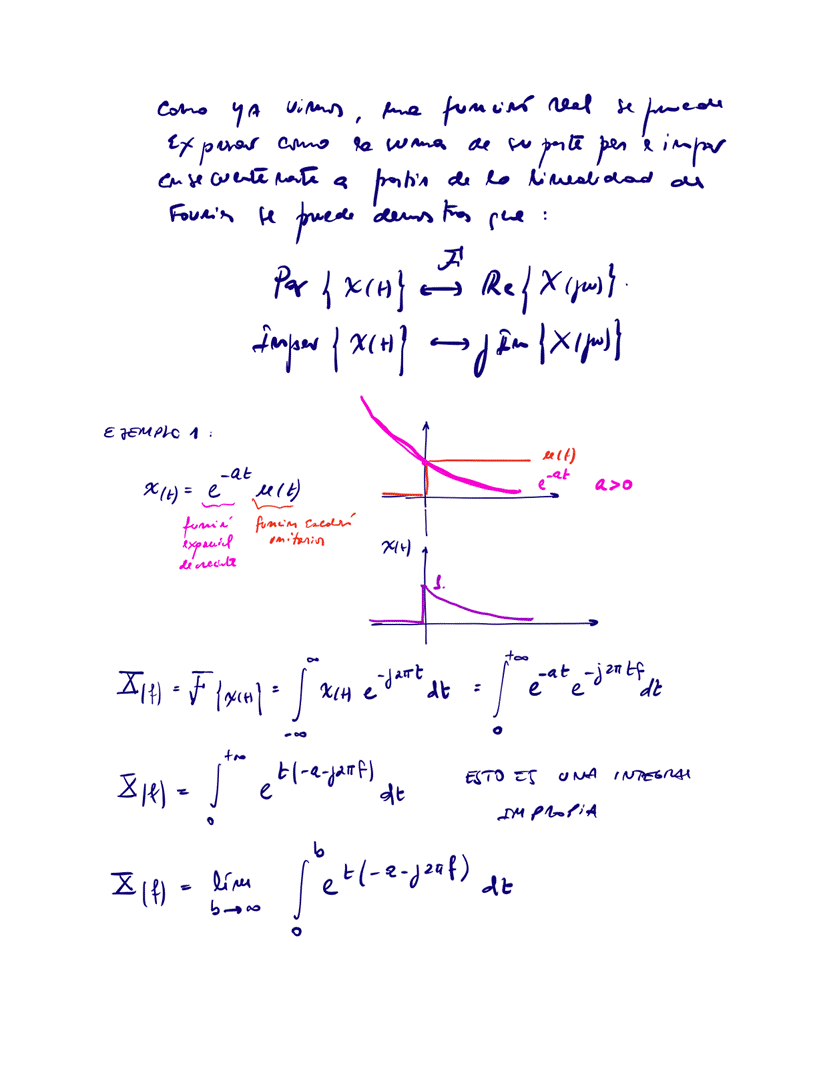 Como ya vimos, una función real se puede
expresar como la suma de su parte par e impar
consecuentemente a partir de la linealidad de
Fourier se puede demostrar que :
Par { x(t) } ⟷ Re { X(jω) } .
F
Impar { x(t) } ⟷ j Im { X(jω) }
EJEMPLO 1 :
μ(t)
x(t) = e^{-at} μ(t)
e^{-at} a>0
función función escalón
exponencial unitario
decreciente
x(t)
1.
X(f) = F { x(t) } = ∫_{-∞}^{∞} x(t) e^{-j2πt} dt = ∫_{0}^{+∞} e^{-at} e^{-j2πtf} dt
X(f) = ∫_{0}^{+∞} e^{t(-a-j2πf)} dt ESTO ES UNA INTEGRAL
IMPROPIA
X(f) = lím_{b→∞} ∫_{0}^{b} e^{t(-a-j2πf)} dt